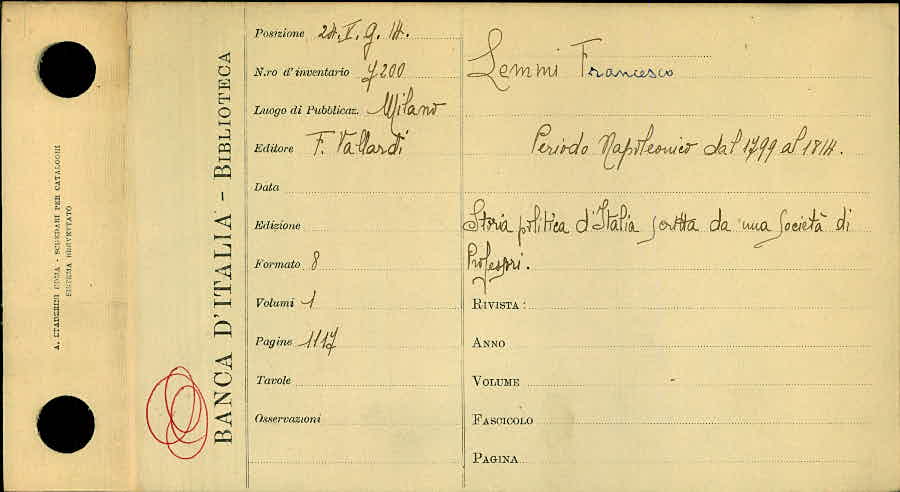 A. STADERINI ROMA - SCHEDARI PER CATALOGHI
SISTEMA BREVETTATO
BANCA D'ITALIA - BIBLIOTECA
Posizione 24. I. g. 14.
N.ro d'inventario 7200
Luogo di Pubblicaz. Milano
Editore F. Vallardi
Data
Edizione
Formato 8
Volumi 1
Pagine 1117
Tavole
Osservazioni
Lemmi Francesco
Periodo Napoleonico dal 1799 al 1814.
Storia politica d'Italia scritta da una società di
Professori.
RIVISTA:
ANNO
VOLUME
FASCICOLO
PAGINA